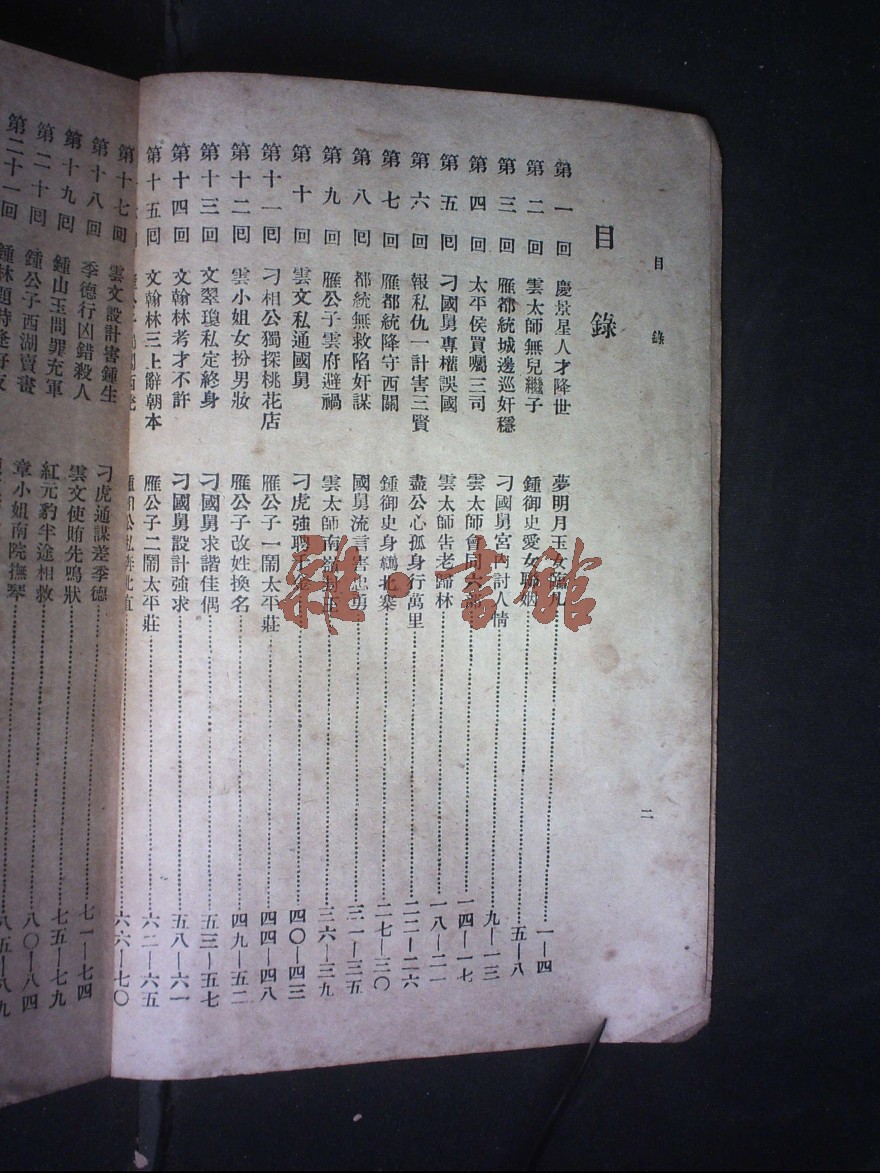 目錄
二
目錄
第一回 慶景星人才降世 夢明月玉女 一—四
第二回 雲太師無兒繼子 鍾御史愛女聯姻 五—八
第三回 雁都統城邊巡奸穩 刁國舅宮內討人情 九—一三
第四回 太平侯買囑三司 雲太師會同 一四—一七
第五回 刁國舅專權誤國 雲太師告老歸林 一八—二一
第六回 報私仇一計害三賢 盡公心孤身行萬里 二二—二六
第七回 雁都統降守西關 鍾御史身羈北寨 二七—三〇
第八回 都統無救陷奸謀 國舅流言害忠勇 三一—三五
第九回 雁公子雲府避禍 雲太師南 三六—三九
第十回 雲文私通國舅 刁虎強聘 四〇—四三
第十一回 刁相公獨探桃花店 雁公子一鬧太平莊 四四—四八
第十二回 雲小姐女扮男妝 雁公子改姓換名 四九—五二
第十三回 文翠瓊私定終身 刁國舅求諧佳偶 五三—五七
第十四回 文翰林考才不許 刁國舅設計強求 五八—六一
第十五回 文翰林三上辭朝本 雁公子二鬧太平莊 六二—六五
六六—七〇
第十七回 雲文設計害鍾生 刁虎通謀差季德 七一—七四
第十八回 季德行凶錯殺人 雲文使賄先鳴狀 七五—七九
第十九回 鍾山玉問罪充軍 紅元豹半途相救 八〇—八四
第二十回 鍾公子西湖賣畫 章小姐南院撫琴 八五—八九
第二十一回